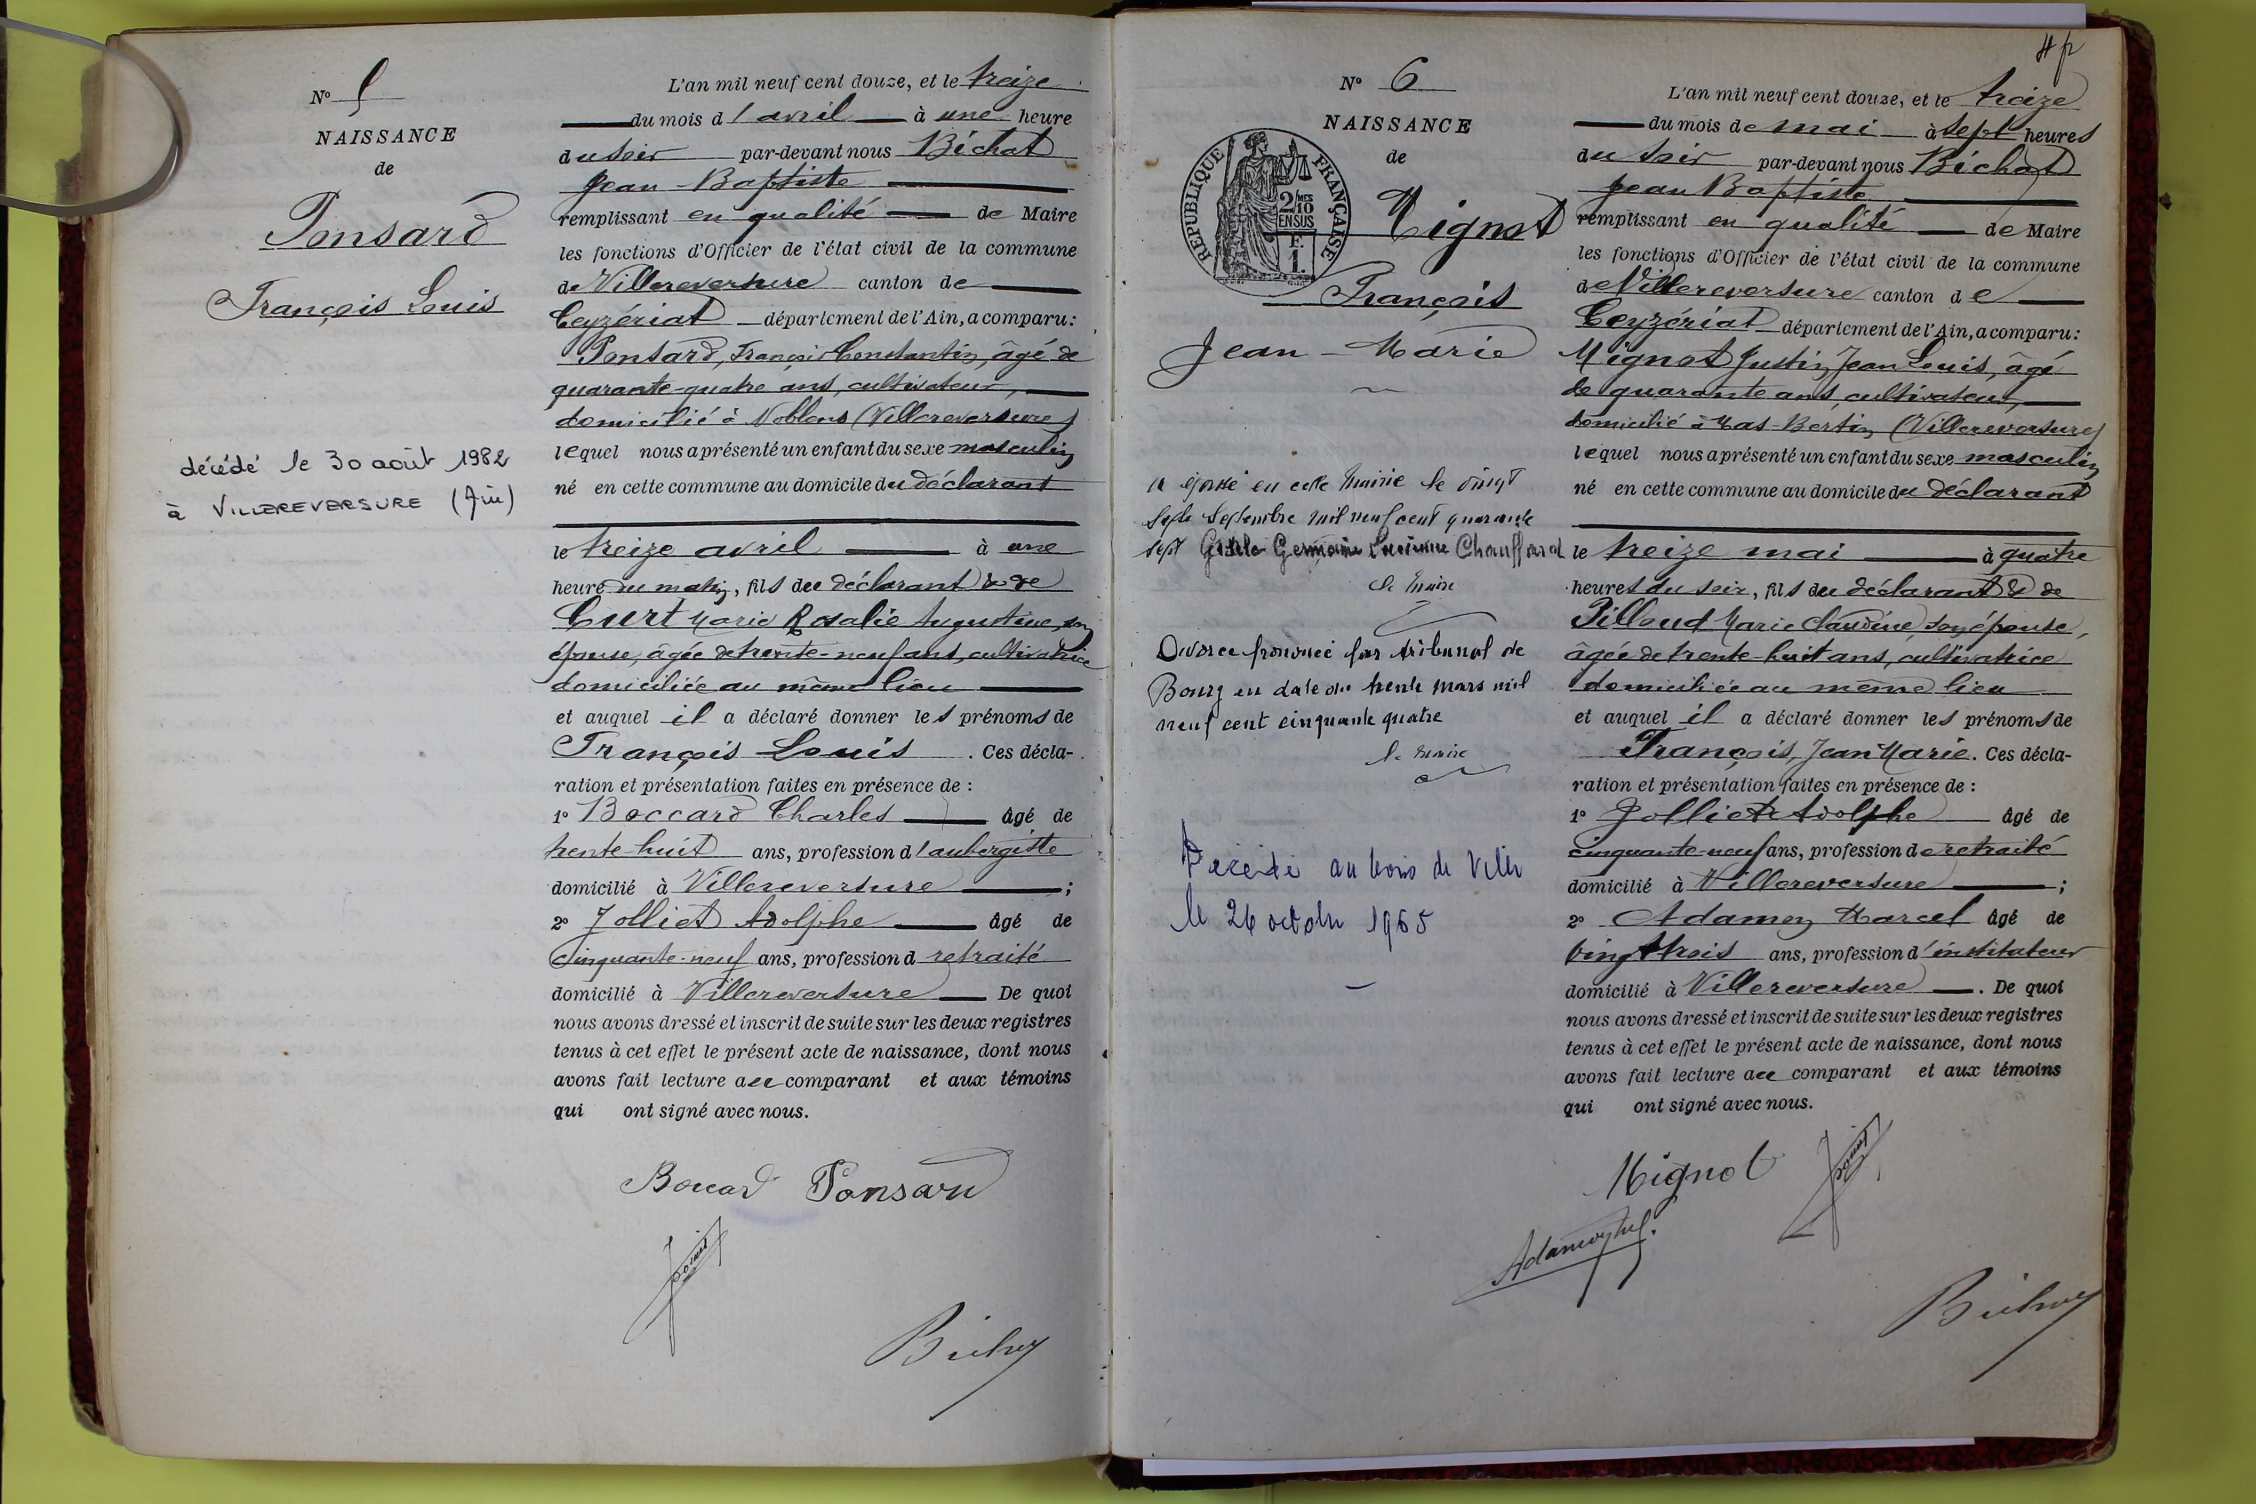 N° 5
NAISSANCE
de
Ponsard
François Louis
décédé le 30 août 1982
à VILLEREVERSURE (Ain)
L'an mil neuf cent douze, et le treize
du mois d'avril à une heure
du soir par-devant nous Béchat
Jean-Baptiste
remplissant en qualité de Maire
les fonctions d'Officier de l'état civil de la commune
de Villereversure canton de
Ceyzériat département de l'Ain, a comparu:
Ponsard, François Constantin, âgé de
quarante-quatre ans, cultivateur,
domicilié à Noblens (Villereversure)
lequel nous a présenté un enfant du sexe masculin
né en cette commune au domicile du déclarant
le treize avril à une
heure du matin, fils du déclarant & de
Curt Marie Rosalie Augustine, son
épouse, âgée de trente-neuf ans, cultivatrice
domiciliée au même lieu
et auquel il a déclaré donner les prénoms de
François Louis. Ces décla-
ration et présentation faites en présence de :
1° Boccard Charles âgé de
trente-huit ans, profession d'aubergiste
domicilié à Villereversure ;
2° Jolliet Adolphe âgé de
cinquante-neuf ans, profession d retraité
domicilié à Villereversure De quoi
nous avons dressé et inscrit de suite sur les deux registres
tenus à cet effet le présent acte de naissance, dont nous
avons fait lecture au comparant et aux témoins
qui ont signé avec nous.
Boccard Ponsard
N° 6
NAISSANCE
de
RÉPUBLIQUE FRANÇAISE
2/10
EN SUS
F.
1.
Mignot
François
Jean-Marie
A épousé en cette Mairie le vingt
septembre mil neuf cent quarante
sept Germaine Lucienne Chauffard
Le Maire
Divorce prononcé par tribunal de
Bourg en date du trente mars mil
neuf cent cinquante quatre
le Maire
Décédé au bois de
le 26 octobre 1965
L'an mil neuf cent douze, et le treize
du mois de mai à sept heures
du soir par-devant nous Béchat
Jean Baptiste
remplissant en qualité de Maire
les fonctions d'Officier de l'état civil de la commune
de Villereversure canton de
Ceyzériat département de l'Ain, a comparu:
Mignot Justin Jean Louis, âgé
de quarante ans, cultivateur,
domicilié à Mas-Bertin (Villereversure)
lequel nous a présenté un enfant du sexe masculin
né en cette commune au domicile du déclarant
le treize mai à quatre
heures du soir, fils du déclarant & de
Pilloud Marie Claudine, son épouse,
âgée de trente-huit ans, cultivatrice
domiciliée au même lieu
et auquel il a déclaré donner les prénoms de
François, Jean Marie. Ces décla-
ration et présentation faites en présence de :
1° Jolliet Adolphe âgé de
cinquante-neuf ans, profession de retraité
domicilié à Villereversure ;
2° Adamoy Marcel âgé de
vingt trois ans, profession d'instituteur
domicilié à Villereversure. De quoi
nous avons dressé et inscrit de suite sur les deux registres
tenus à cet effet le présent acte de naissance, dont nous
avons fait lecture au comparant et aux témoins
qui ont signé avec nous.
Mignot